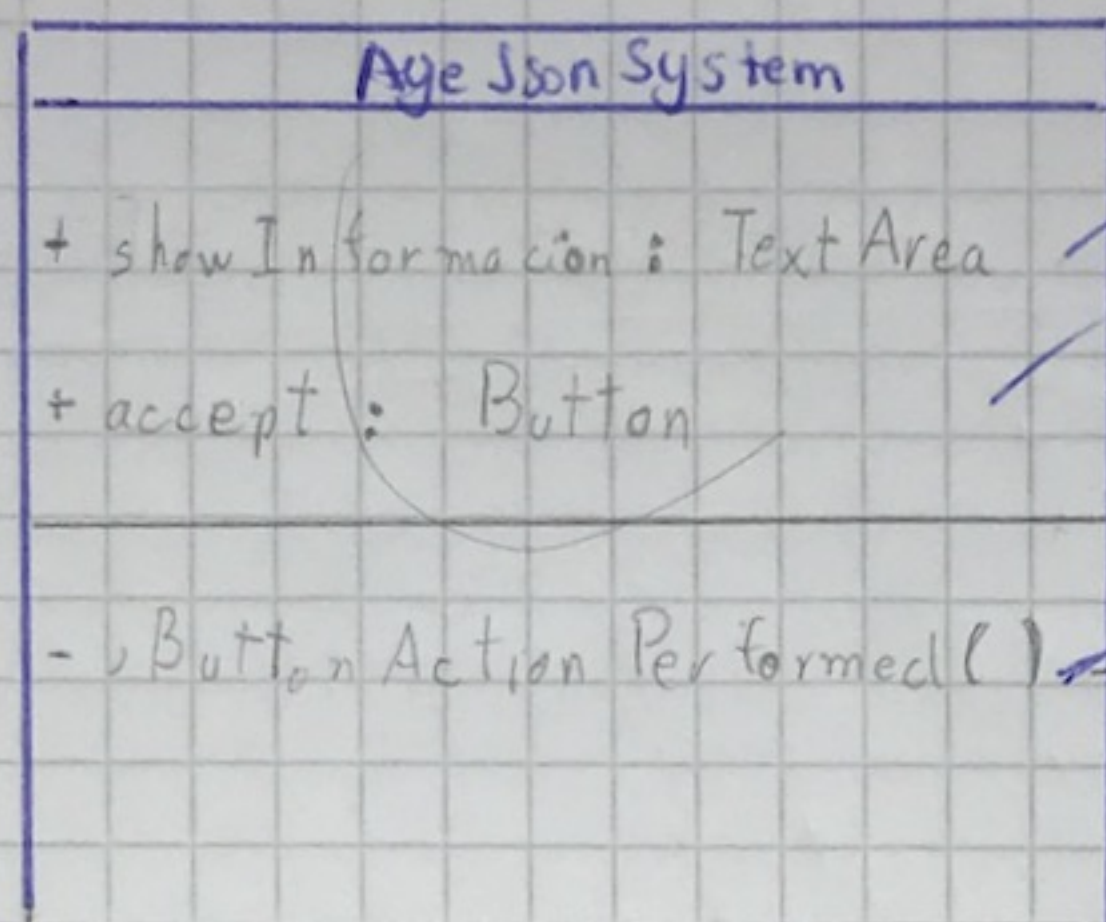 Age Json System
+ showInformacion : TextArea
+ accept : Button
- jButtonActionPerformed()